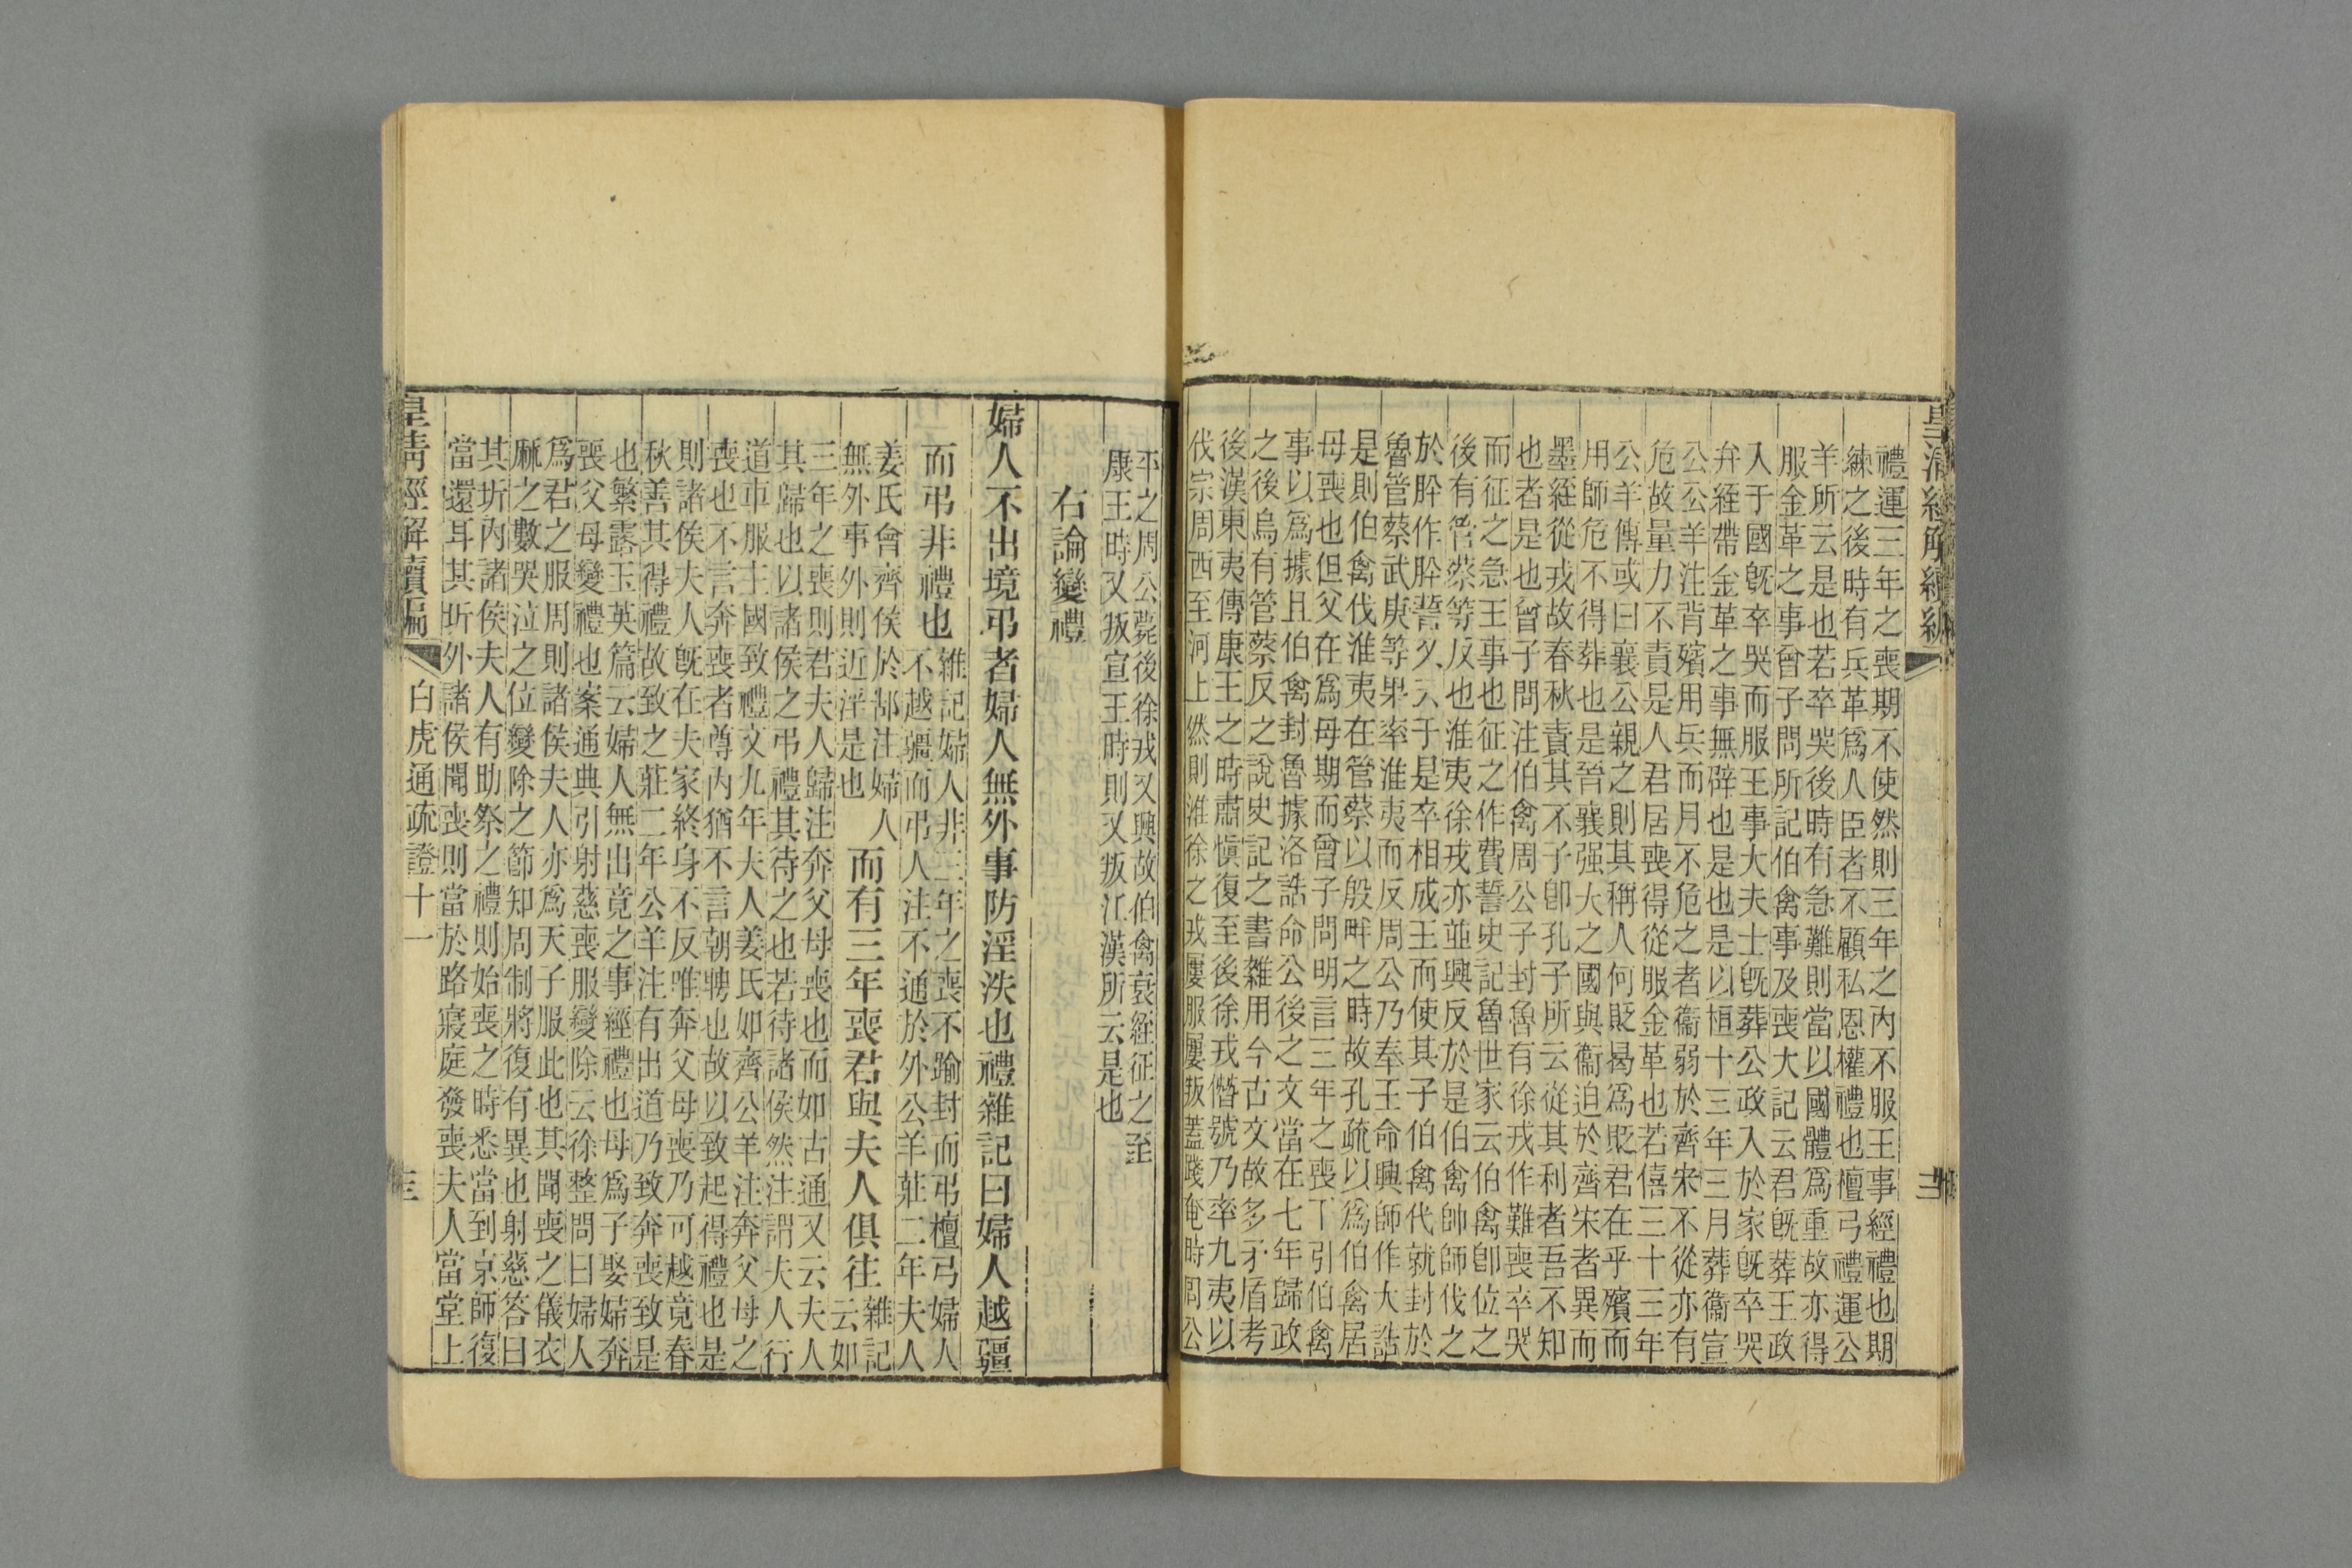 皇清經解續編
禮運三年之喪期不使然則三年之內不服王事經禮也期
練之後時有兵革爲人臣者不顧私恩權禮也檀弓禮運公
羊所云是也若卒哭後時有急難則當以國體爲重故亦得
服金革之事曾子問所記伯禽事及喪大記云君既葬王政
入于國既卒哭而服王事大夫士既葬公政入於家既卒哭
弁絰帶金革之事無辟也是也是以桓十三年三月葬衞宣
公公羊注背殯用兵而月不危之者衞弱於齊宋不從亦有
危故量力不責是人君居喪得從服金革也若僖三十三年
公羊傳或曰襄公親之則其稱人何貶曷爲貶君在乎殯而
用師危不得葬也是晉襄强大之國與衞迫於齊宋者異而
墨絰從戎故春秋責其不子卽孔子所云從其利者吾不知
也者是也曾子問注伯禽周公子封魯有徐戎作難喪卒哭
而征之急王事也征之作費誓史記魯世家云伯禽卽位之
後有管蔡等反也淮夷徐戎亦並興反於是伯禽帥師伐之
於肸作肸誓又云于是卒相成王而使其子伯禽代就封於
魯管蔡武庚等果率淮夷而反周公乃奉王命興師作大誥
是則伯禽伐淮夷在管蔡以殷畔之時故孔疏以爲伯禽居
母喪也但父在爲母期而曾子問明言三年之喪下引伯禽
事以爲據且伯禽封魯據洛誥命公後之文當在七年歸政
之後烏有管蔡反之說史記之書雜用今古文故多矛盾考
後漢東夷傳康王之時肅愼復至後徐戎僭號乃率九夷以
伐宗周西至河上然則淮徐之戎屢服屢叛蓋踐奄時周公
平之周公薨後徐戎又興故伯禽衰絰征之至
康王時又叛宣王時則又叛江漢所云是也
右論變禮
婦人不出境弔者婦人無外事防淫泆也禮雜記曰婦人越疆
而弔非禮也
雜記婦人非三年之喪不踰封而弔檀弓婦人
不越疆而弔人注不通於外公羊莊二年夫人
姜氏會齊侯於郜注婦人
無外事外則近淫是也
而有三年喪君與夫人俱往
雜記
云如
三年之喪則君夫人歸注奔父母喪也而如古通又云夫人
其歸也以諸侯之弔禮其待之也若待諸侯然注謂夫人行
道車服主國致禮文九年夫人姜氏如齊公羊注奔父母之
喪也不言奔喪者尊內猶不言朝聘也故以致起得禮也是
則諸侯夫人既在夫家終身不反唯奔父母喪乃可越竟春
秋善其得禮故致之莊二年公羊注有出道乃致奔喪致是
也繁露玉英篇云婦人無出竟之事經禮也母爲子娶婦奔
喪父母變禮也案通典引射慈喪服變除云徐整問曰婦人
爲君之服周則諸侯夫人亦爲天子服此也其聞喪之儀衣
麻之數哭泣之位變除之節知周制將復有異也射慈答曰
其圻內諸侯夫人有助祭之禮則始喪之時悉當到京師復
當還耳其圻外諸侯聞喪則當於路寢庭發喪夫人當堂上
皇淸經解續編
白虎通疏證十一